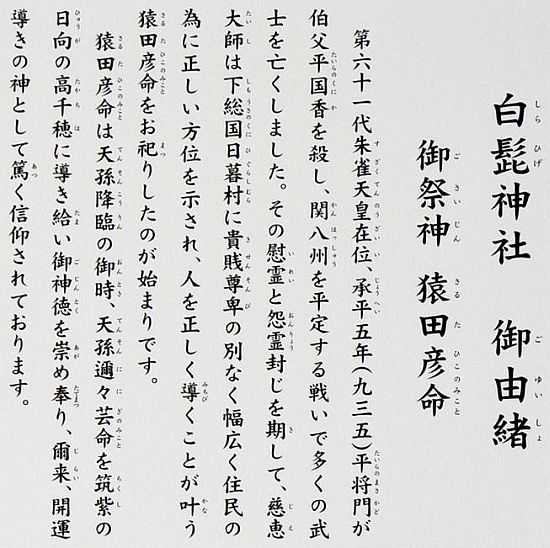 白髭神社　御由緒
御祭神　猿田彦命
第六十一代朱雀天皇在位、承平五年(九三五)平将門が
伯父平国香を殺し、関八州を平定する戦いで多くの武
士を亡くしました。その慰霊と怨霊封じを期して、慈恵
大師は下総国日暮村に貴賎尊卑の別なく幅広く住民の
為に正しい方位を示され、人を正しく導くことが叶う
猿田彦命をお祀りしたのが始まりです。
猿田彦命は天孫降臨の御時、天孫邇々芸命を筑紫の
日向の高千穂に導き給い御神徳を崇め奉り、爾来、開運
導きの神として篤く信仰されております。